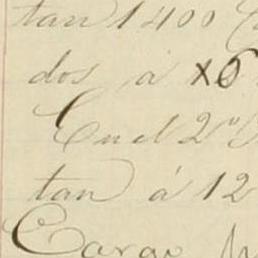 tan 1400
dos á x6
En el 2º
tan á 12
Cargo